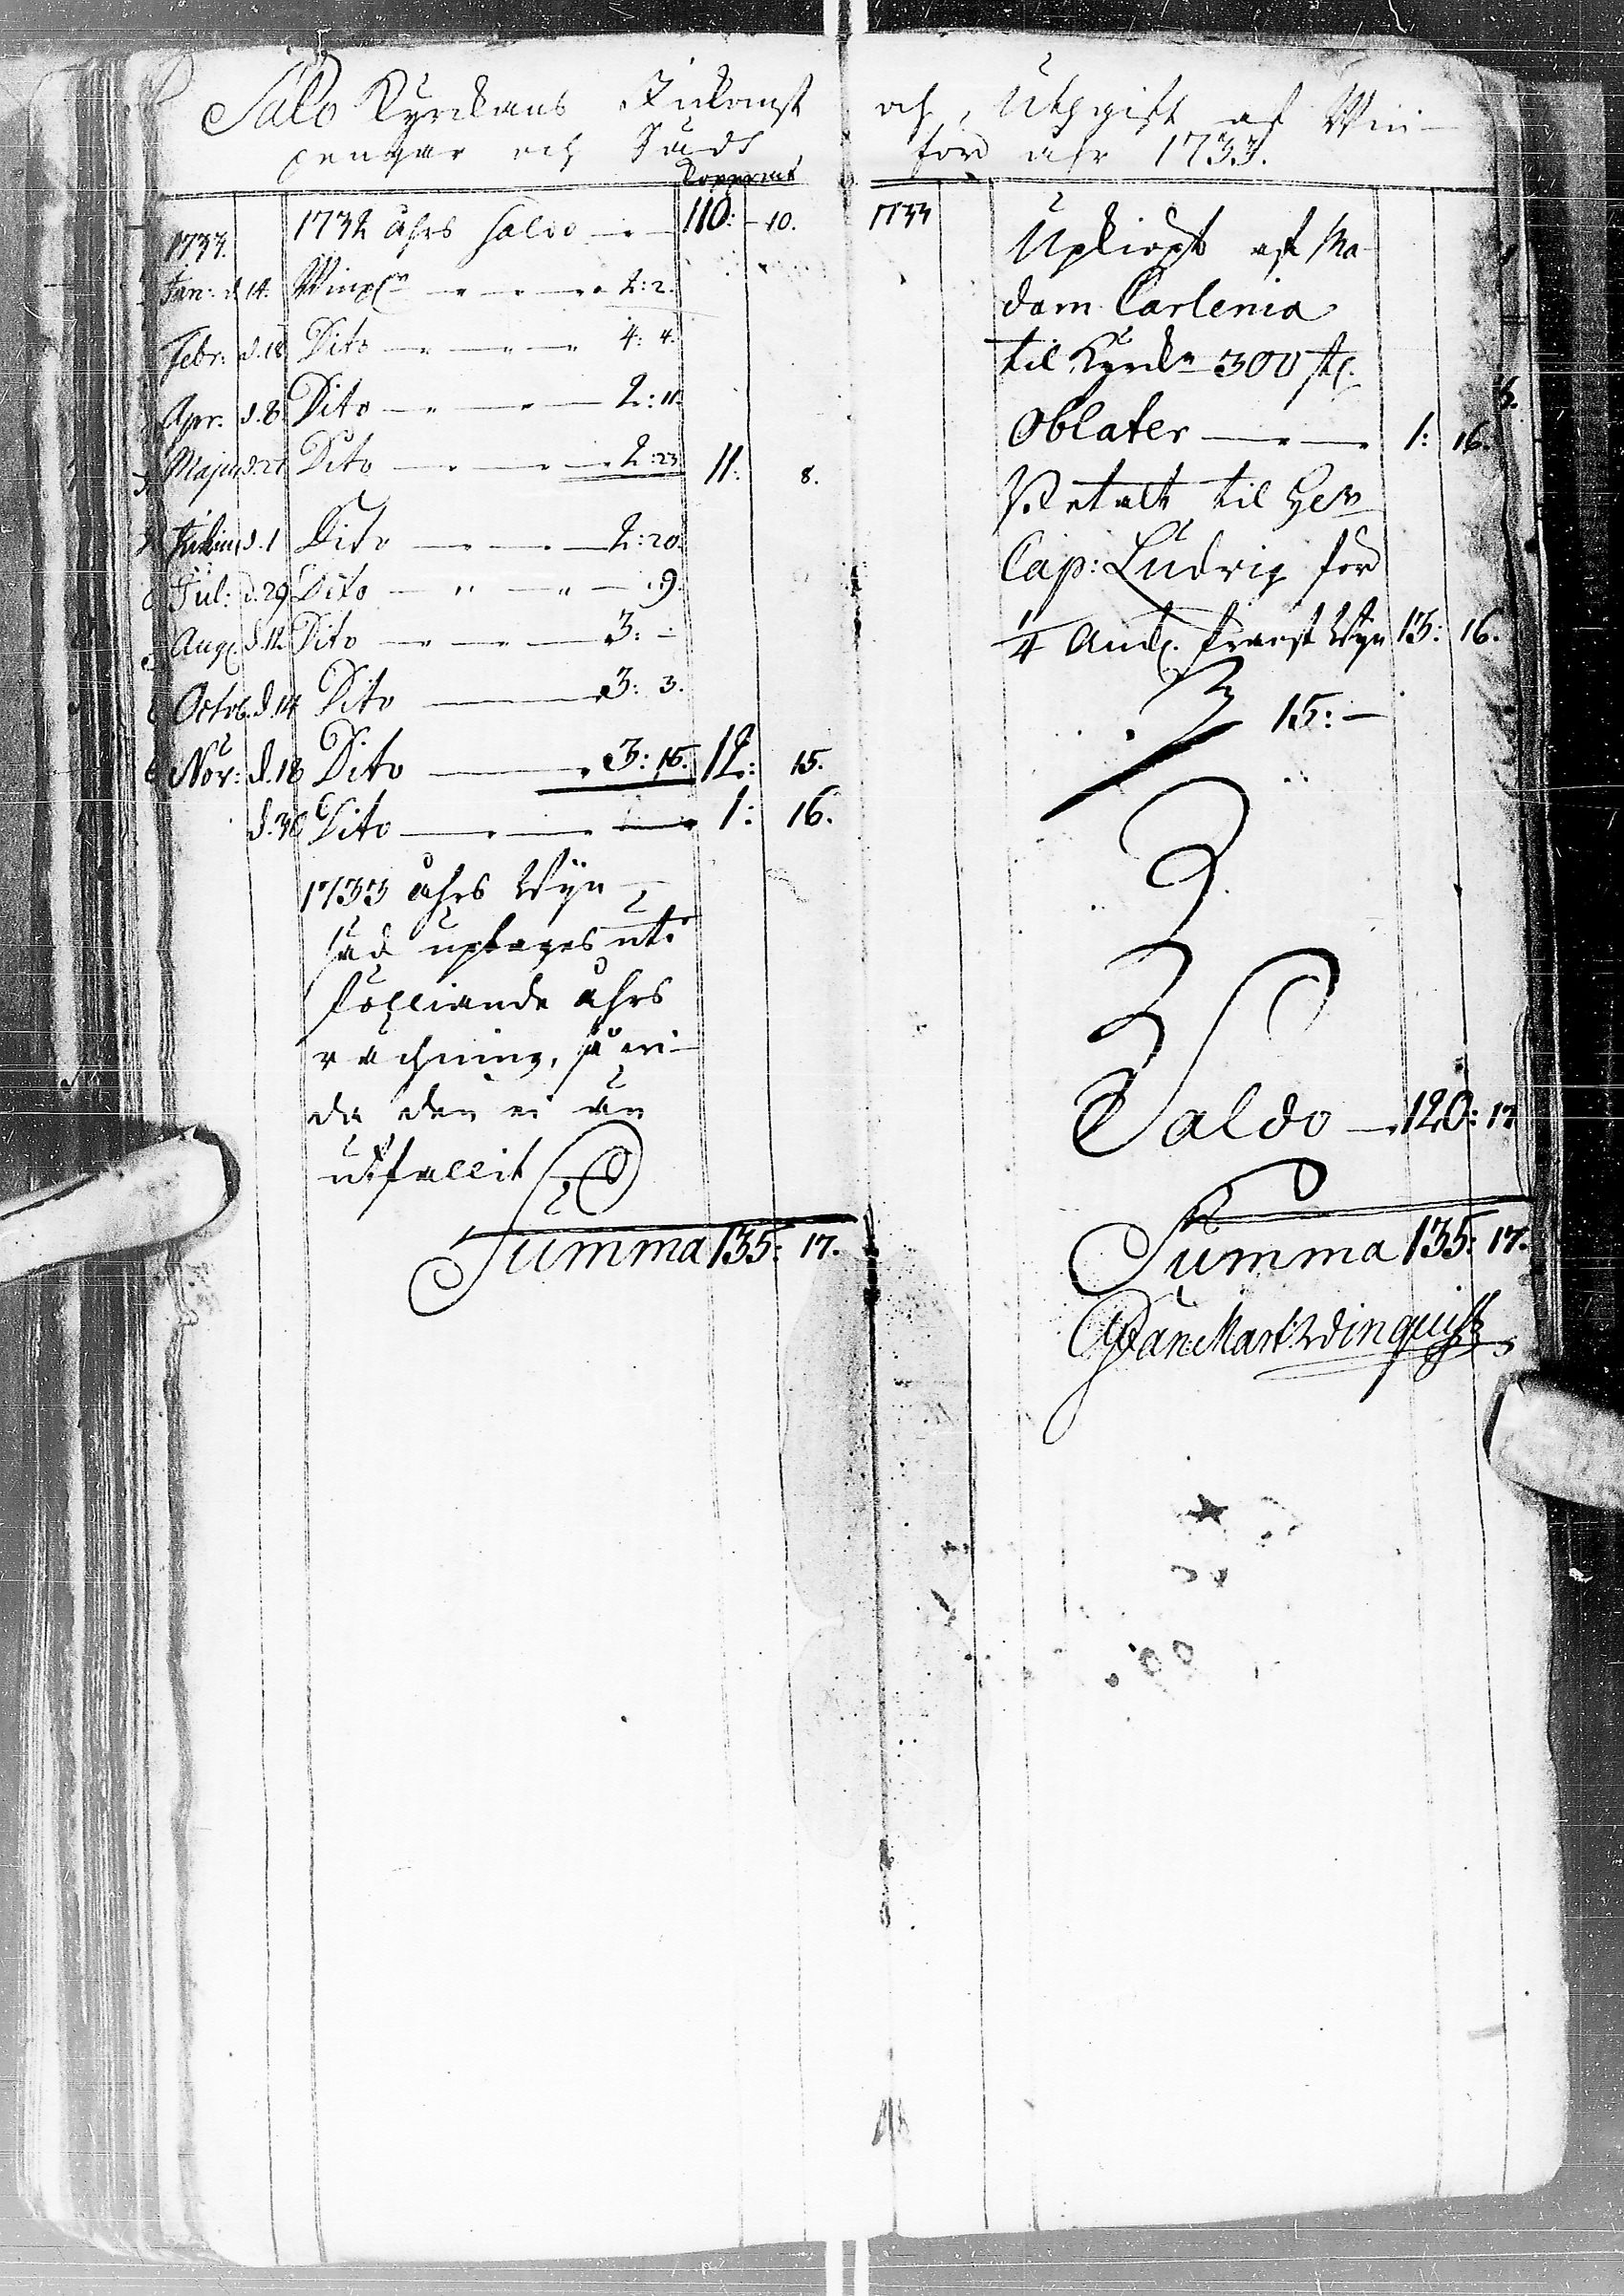 Salo Kyrckans Inkomst och Utgift af Win-
penngar och Säds för åhr 1733.
Kopparmt
1733. 1732 åhrs saldo 110: 10.
Jan: d. 14. Winp 2: 2.
Febr: d. 18 Dito 4: 4.
Apr. d. 8. Dito 2: 11.
Majus d. 27 Dito 2: 23. 11: 8.
Junius d. 1 Dito 2: 20.
Jul: d. 29 Dito 9.
Aug d. 12 Dito 3: -
Octob. d. 14 Dito 3: 3.
Nov: d. 18 Dito 3: 15. 12: 15.
d. 30 Dito 1: 16.
1733 åhrs Wijn
säd uptages uti
följiande åhrs
rächning, så wi-
da den ei än
utfallit
Summa 135: 17.
1733 Upkiöpt af Ma-
dam Carlenia
til Kyrck 300 st.
Oblater 1: 16.
Betalt til Her
Cap: Ludvig för
1/4 Anck. Franst Wijn 13: 16.
15: -
Saldo 120: 17
Summa 135: 17.
Dan: Mart: Winquist